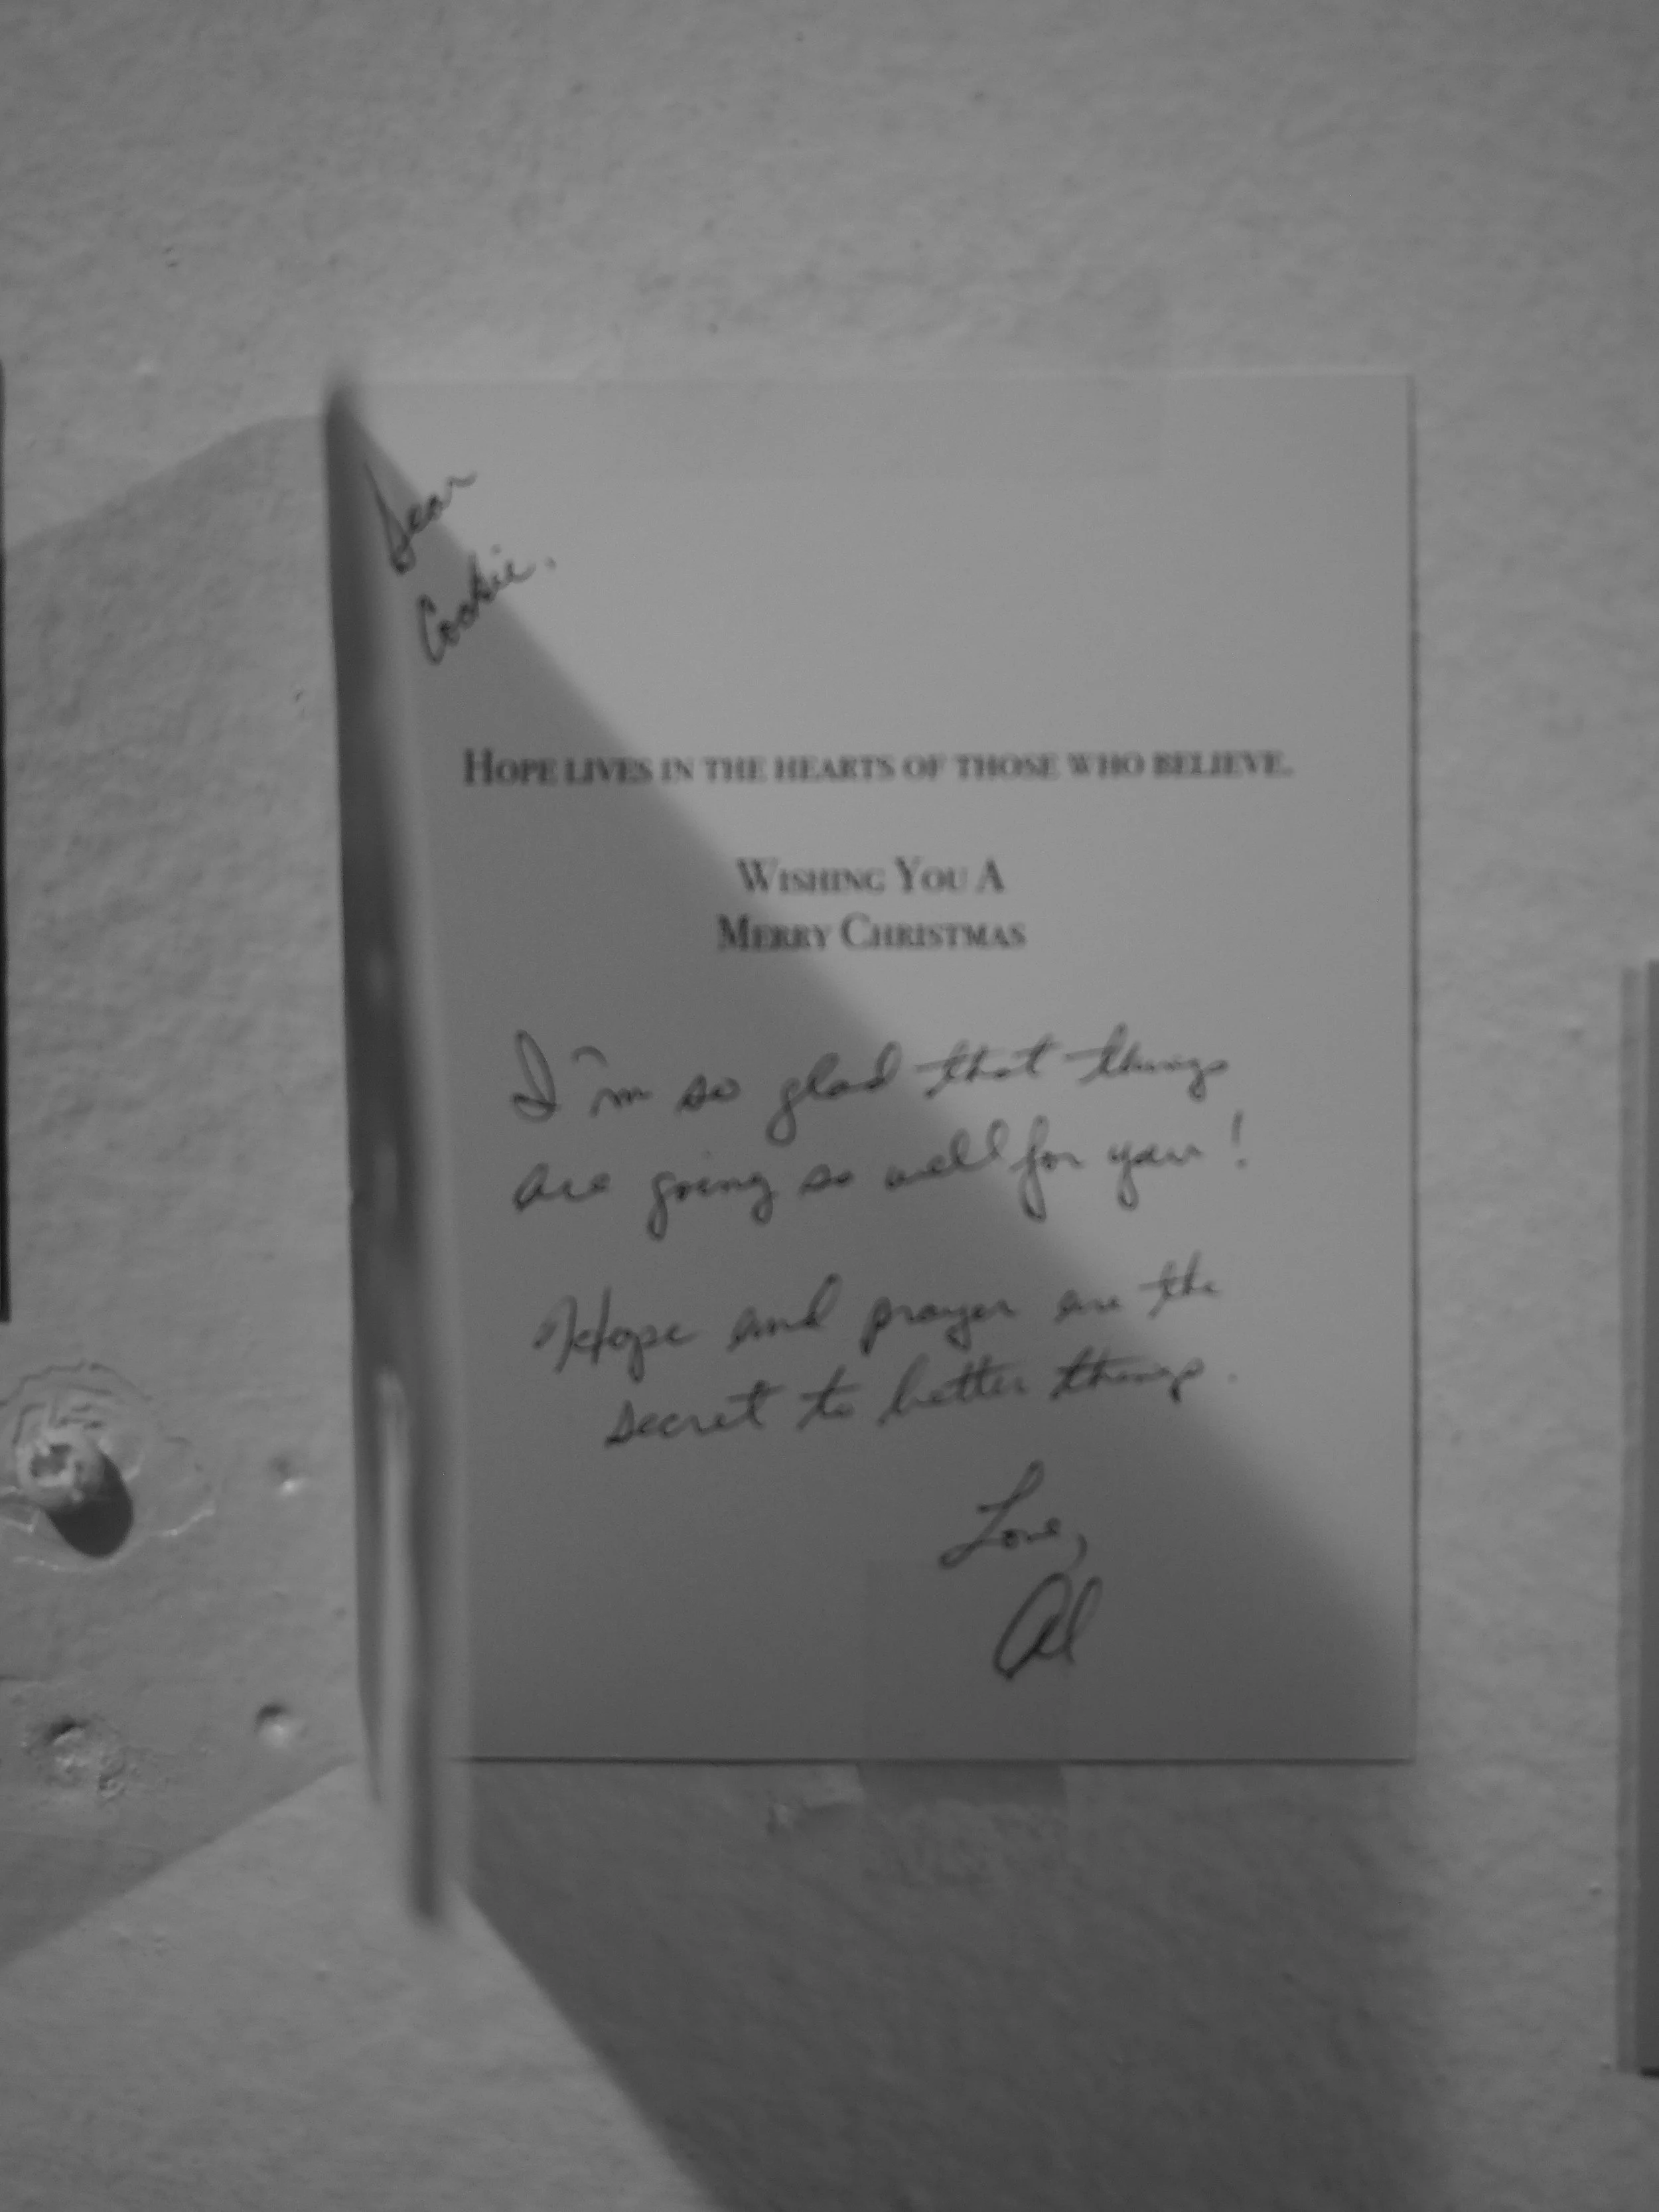 Dear
Cookie.
HOPE LIVES IN THE HEARTS OF THOSE WHO BELIEVE.
WISHING YOU A
MERRY CHRISTMAS
I'm so glad that things
are going so well for you!
Hope and prayer are the
secret to better things.
Love,
Al